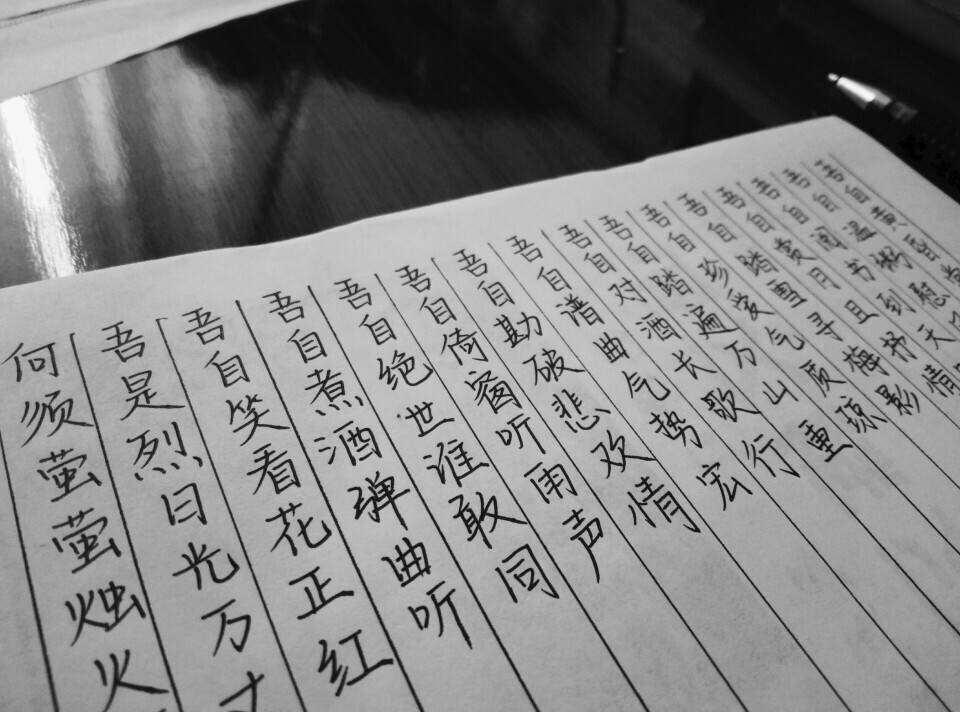 吾自黄昏
吾自温粥憩
吾自闲书到天
吾自赏月且抒情
吾自踏雪寻梅影
吾自珍爱气质琼
吾自踏遍万山重
吾自对酒长歌行
吾自谱曲气势宏
吾自勘破悲欢情
吾自倚窗听雨声
吾自绝世谁敢同
吾自煮酒弹曲听
吾自笑看花正红
吾是烈日光万丈
何须萤萤烛火